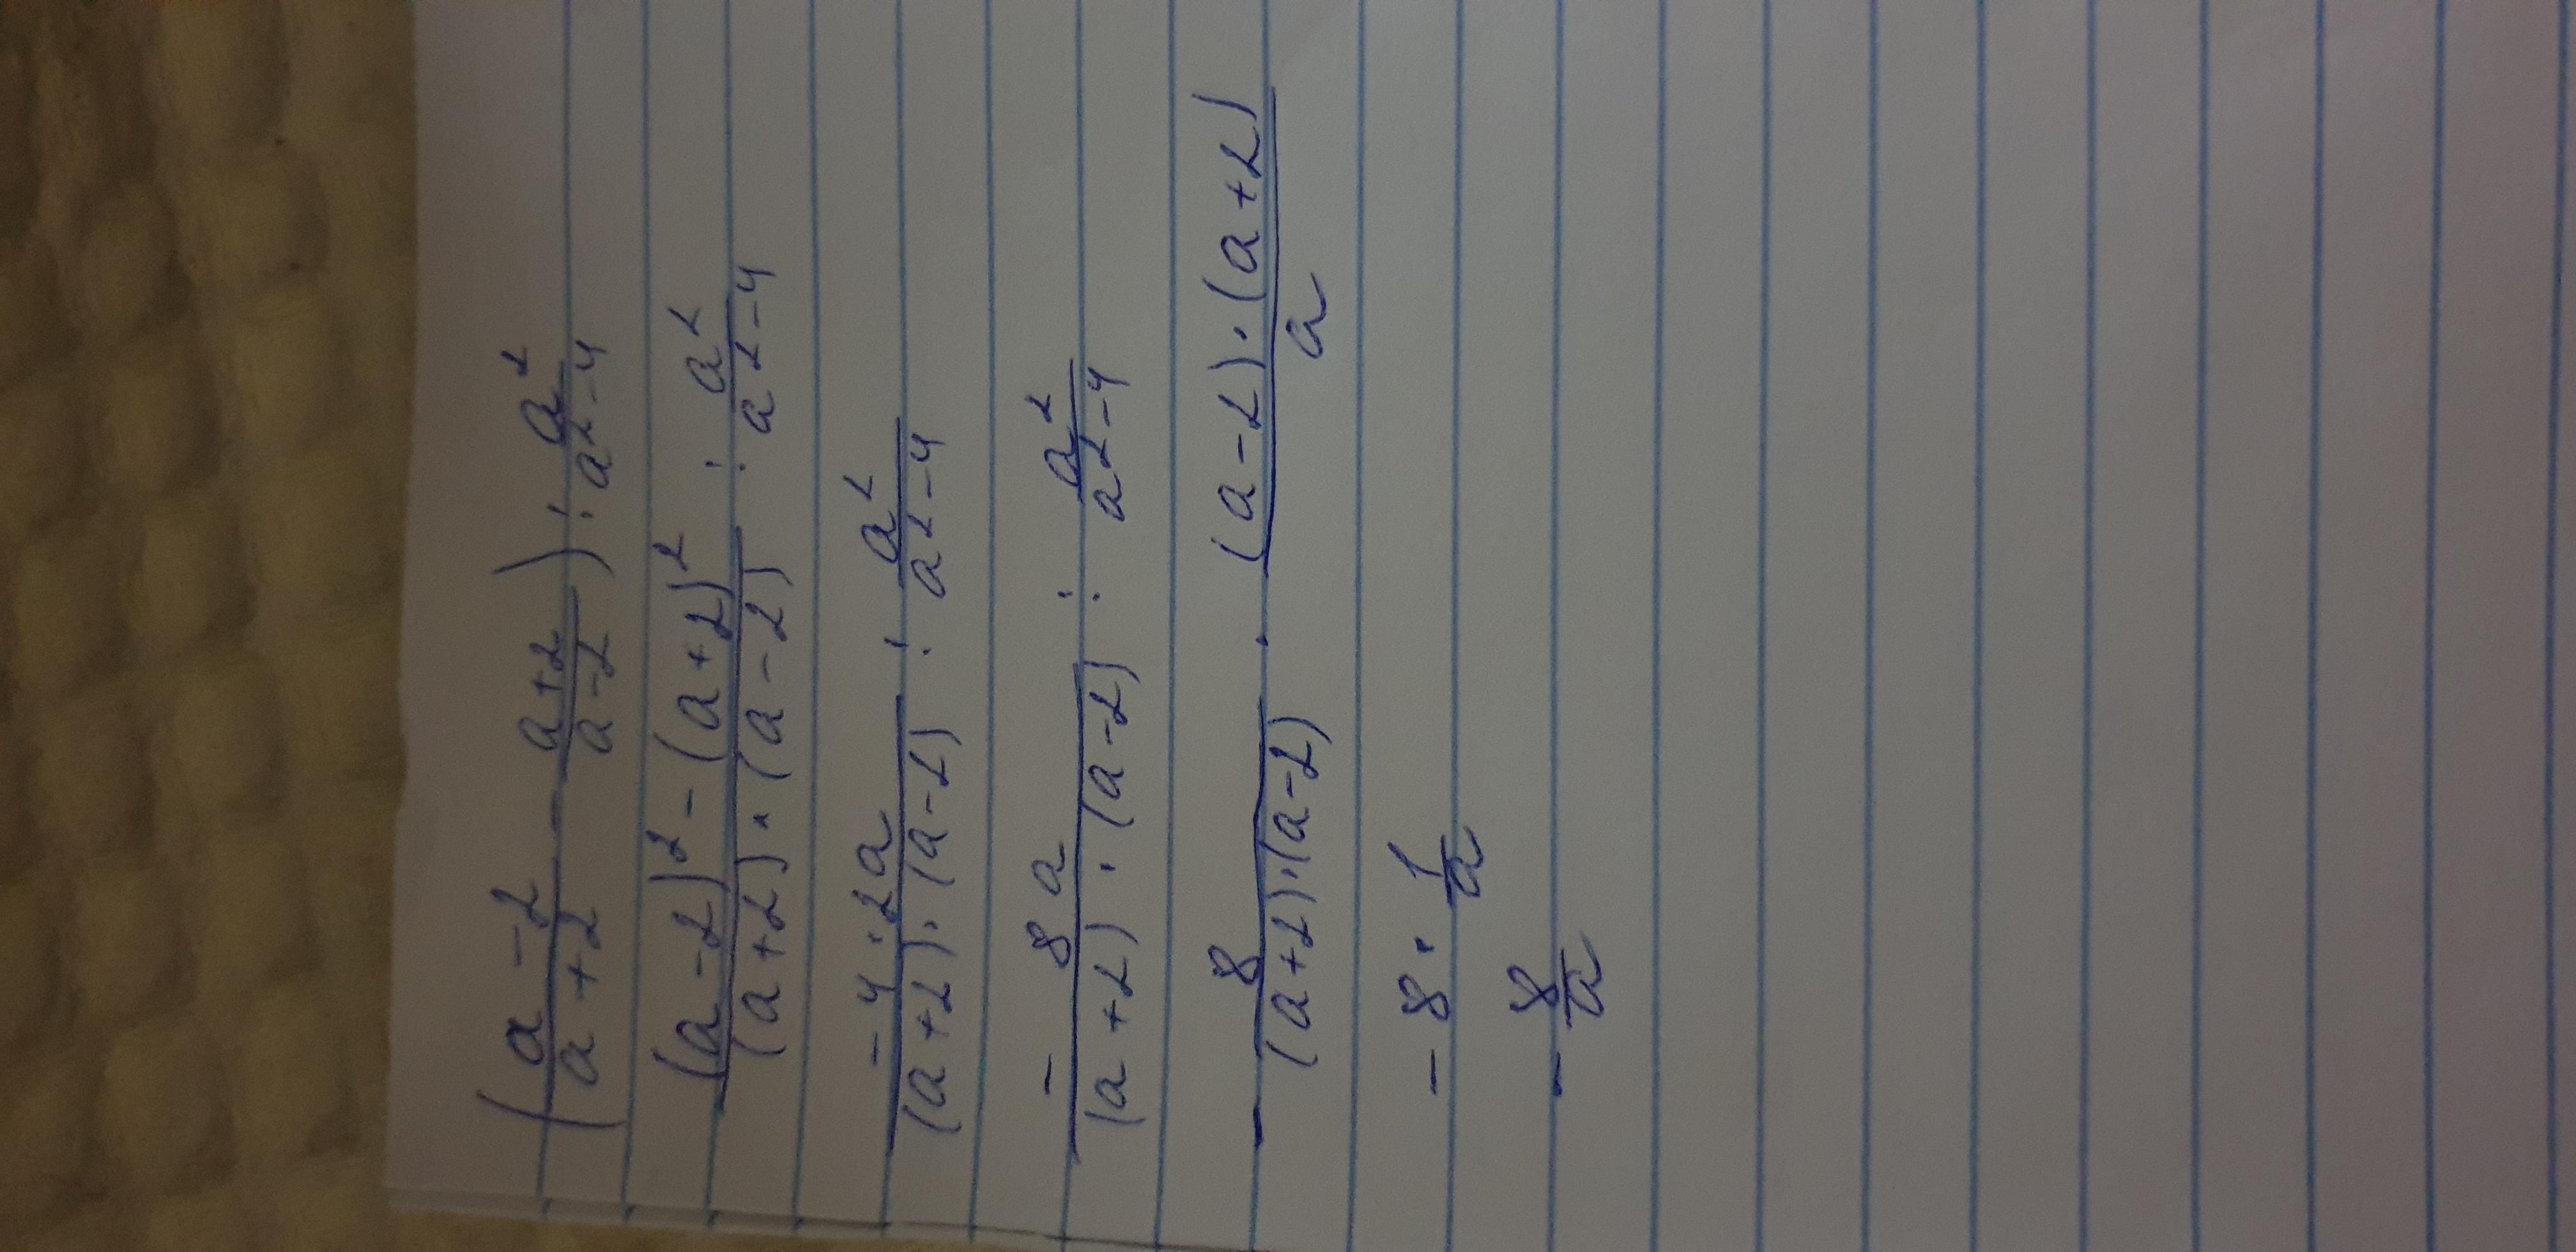 (a-2/a+2 - a+2/a-2) : a²/a²-4
(a-2)²-(a+2)²/(a+2)·(a-2) : a²/a²-4
-4·2a/(a+2)·(a-2) : a²/a²-4
-8a/(a+2)·(a-2) : a²/a²-4
- 8/(a+2)·(a-2) · (a-2)·(a+2)/a
-8 · 1/a
- 8/a